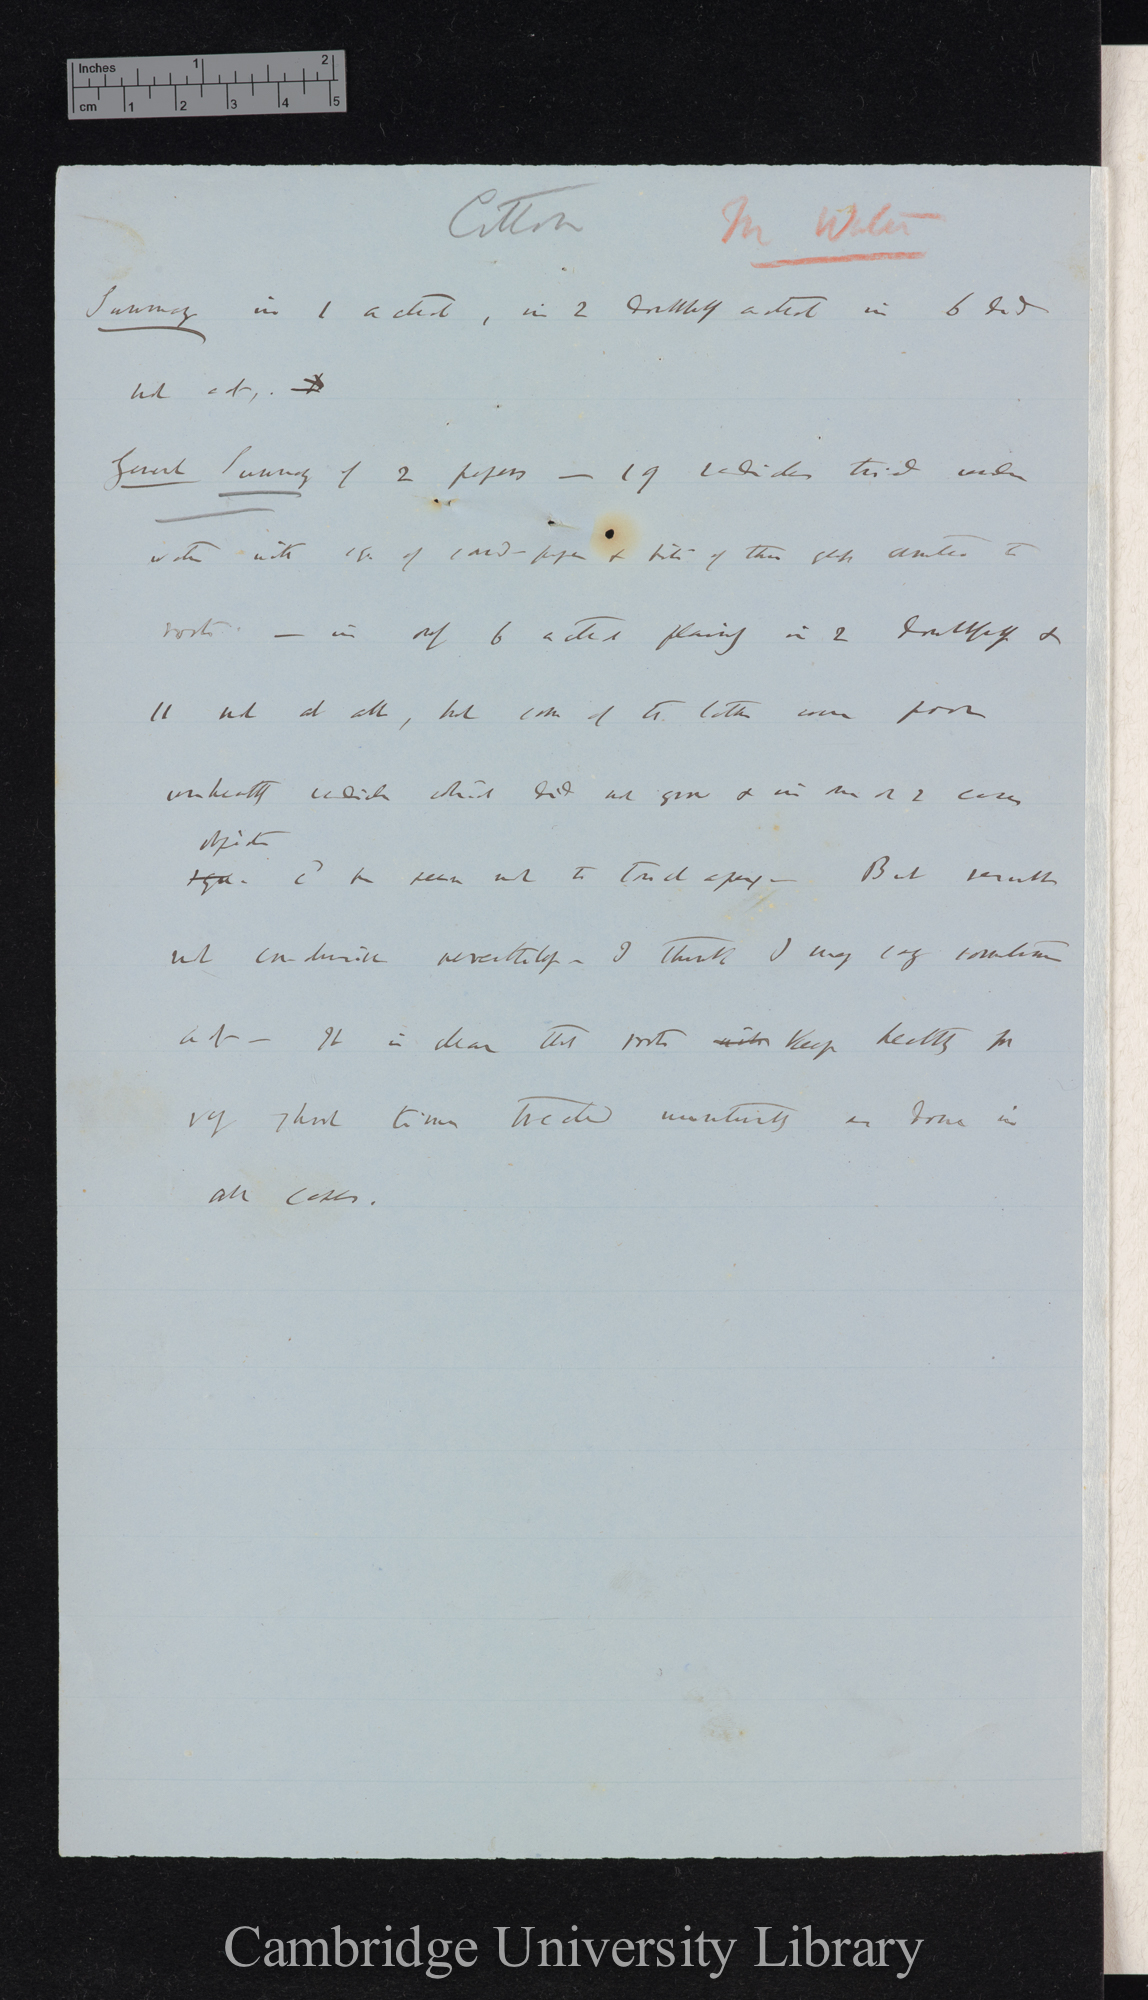 Inches 1 2
cm 1 2 3 4 5
Cotton In Water
Summary in 1 acted, in 2 doubtfully acted in 6 did
not act.
General Summary of 2 papers — 19 radicles tried under
water with sqs of card-paper & bits of thin glass cemented to
roots — in only 6 acted plainly in 2 doubtfully &
11 not at all, but some of the latter were poor
unhealthy radicles which did not grow & in one or 2 cases
objects
sqs. cd be seen not to touch apex — But results
not conclusive nevertheless — I think I may say sometimes
act — It is clear that roots with keep healthy for
very short time treated unnaturally as done in
all cases.
Cambridge University Library